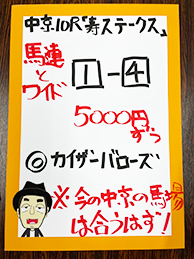 中京10R「寿ステークス」
馬連とワイド
1-4
5000円ずつ
◎カイザーバローズ
※今の中京の馬場は合うはず!